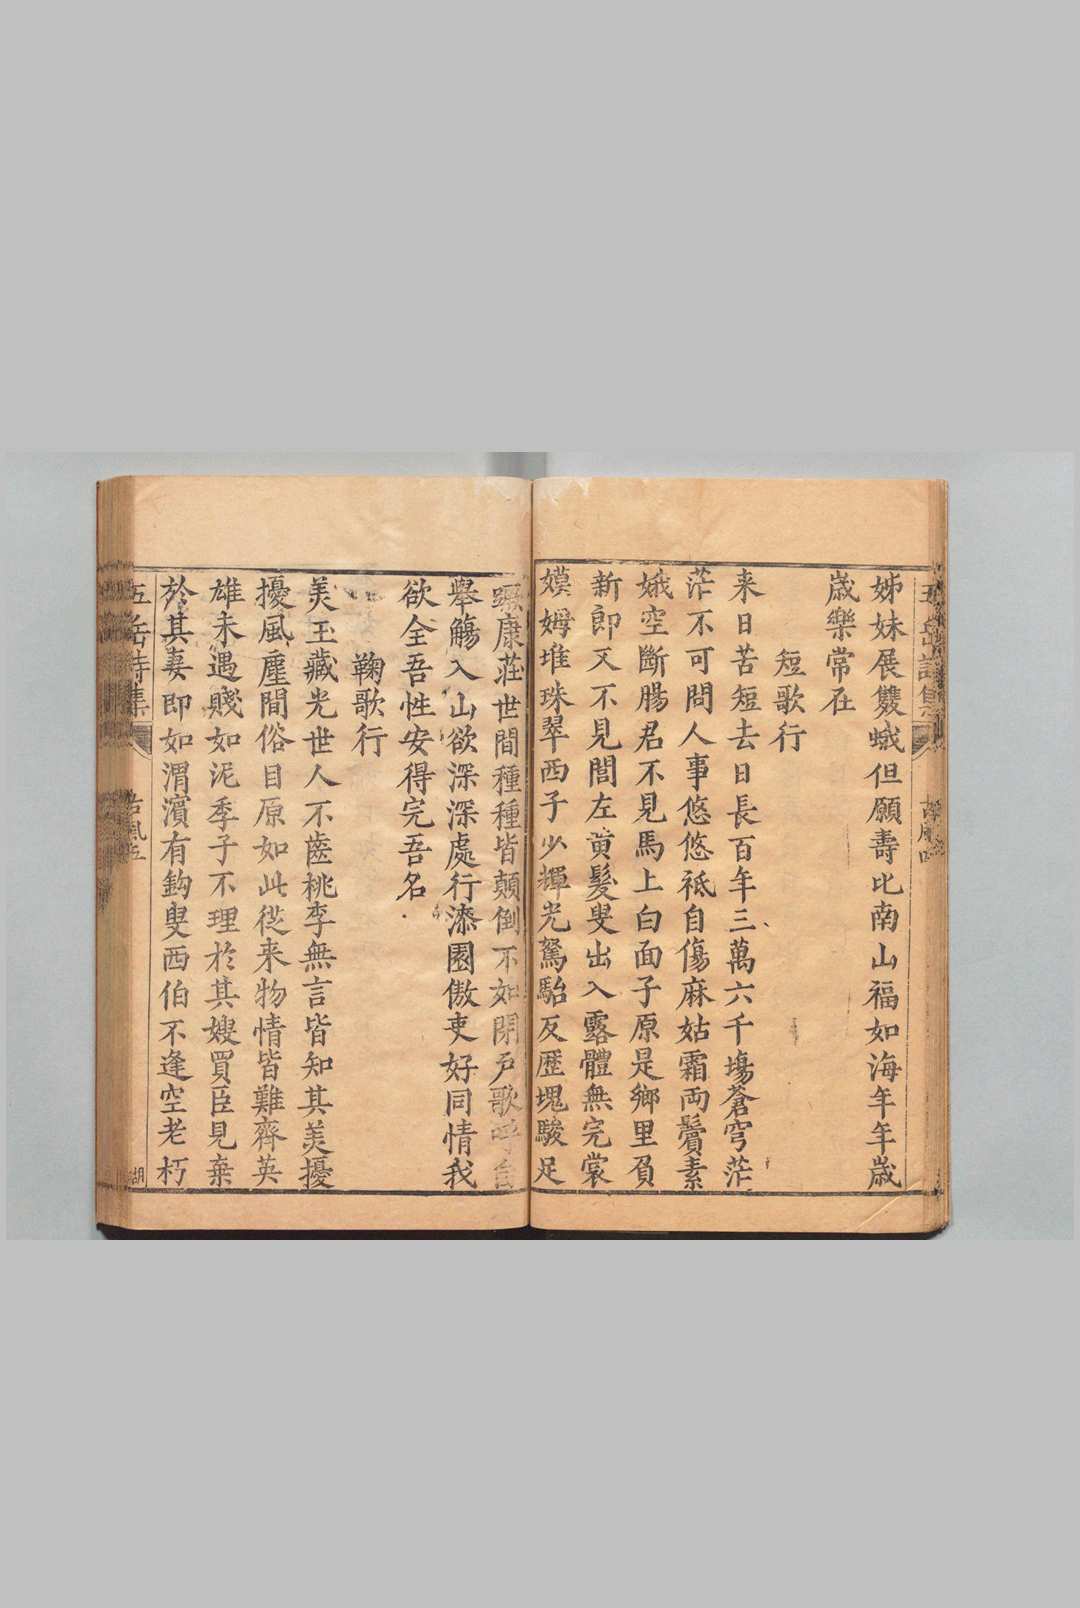 姊妹展雙蛾但願壽比南山福如海年年歲
歲樂常在
短歌行
来日苦短去日長百年三萬六千塲蒼穹茫
茫不可問人事悠悠祗自傷麻姑霜両鬢素
娥空斷腸君不見馬上白面子原是鄉里負
新郎又不見閭左黄髮叟出入露體無完裳
嫫姆堆珠翠西子少輝光駑駘反歷塊駿足
康莊世間種種皆顛倒不如閉戸歌
舉觴入山欲深深處行漆園傲吏好同情我
欲全吾性安得完吾名
鞠歌行
美玉藏光世人不齒桃李無言皆知其美擾
擾風塵間俗目原如此從来物情皆難齊英
雄未遇賤如泥季子不理於其嫂買臣見棄
於其妻即如渭濱有鈎叟西伯不逢空老朽
五岳詩集
古風五